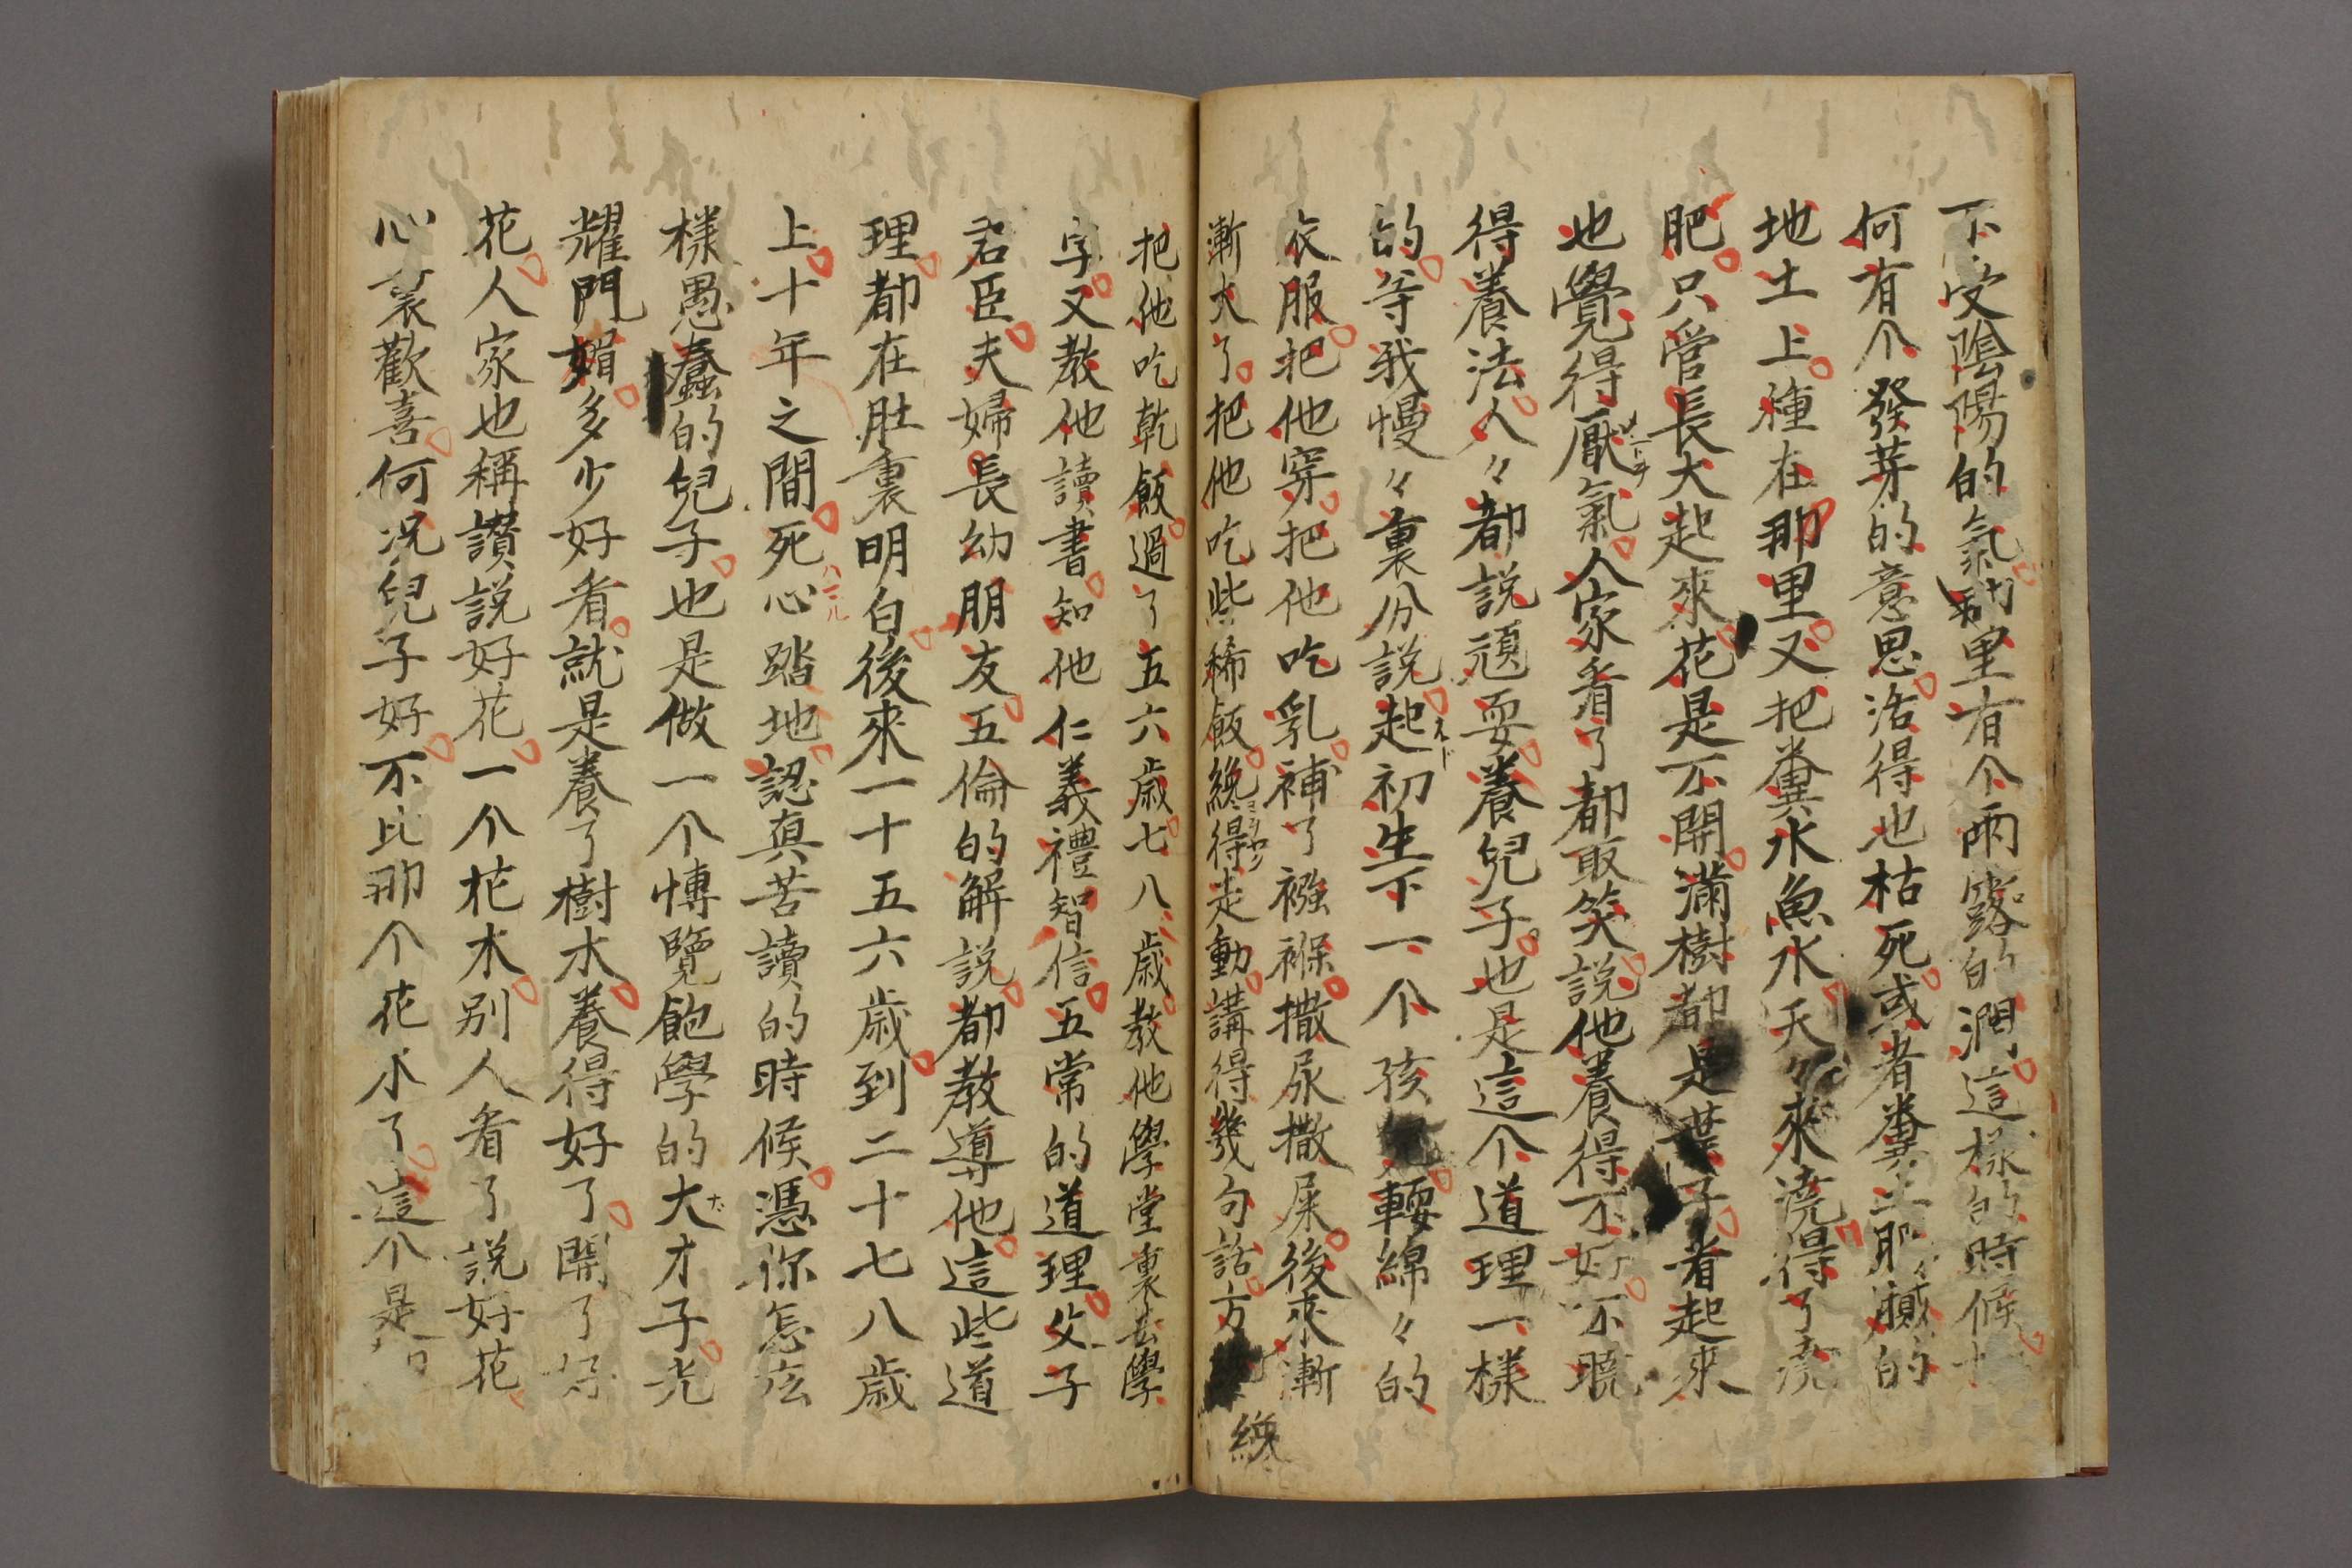 下受陰陽的氣那里有个雨露的潤這樣的時候
何有个發芽的意思活得也枯死或者糞土肥膩的
地土上種在那里又把糞水魚水天々來澆得了澆
肥只管長大起來花是不開滿樹都是葉子看起來
也覺得厭氣人家看了都取笑説他養得不好不曉
得養法人々都説頑耍養兒子也是這个道理一樣
的等我慢々裏分説起初生下一个孩兒輭綿々的
衣服把他穿把他吃乳補了襁褓撒尿撒屎後來漸
漸大了把他吃些稀飯纔得走動講得幾句話方
纔
把他吃乾飯過了五六歳七八歳教他學堂裏去學
字又教他讀書知他仁義禮智信五常的道理父子
君臣夫婦長幼朋友五倫的解説都教導他這些道
理都在肚裏明白後來一十五六歳到二十七八歳
上十年之間死心踏地認真苦讀的時候憑你怎広
樣愚蠢的兒子也是做一个慱覽飽學的大才子光
耀門媚多少好看就是養了樹水養得好了開了好
花人家也稱讃説好花一个花木別人看了説好花
心裏歡喜何況兒子好不比那个花木了這个是